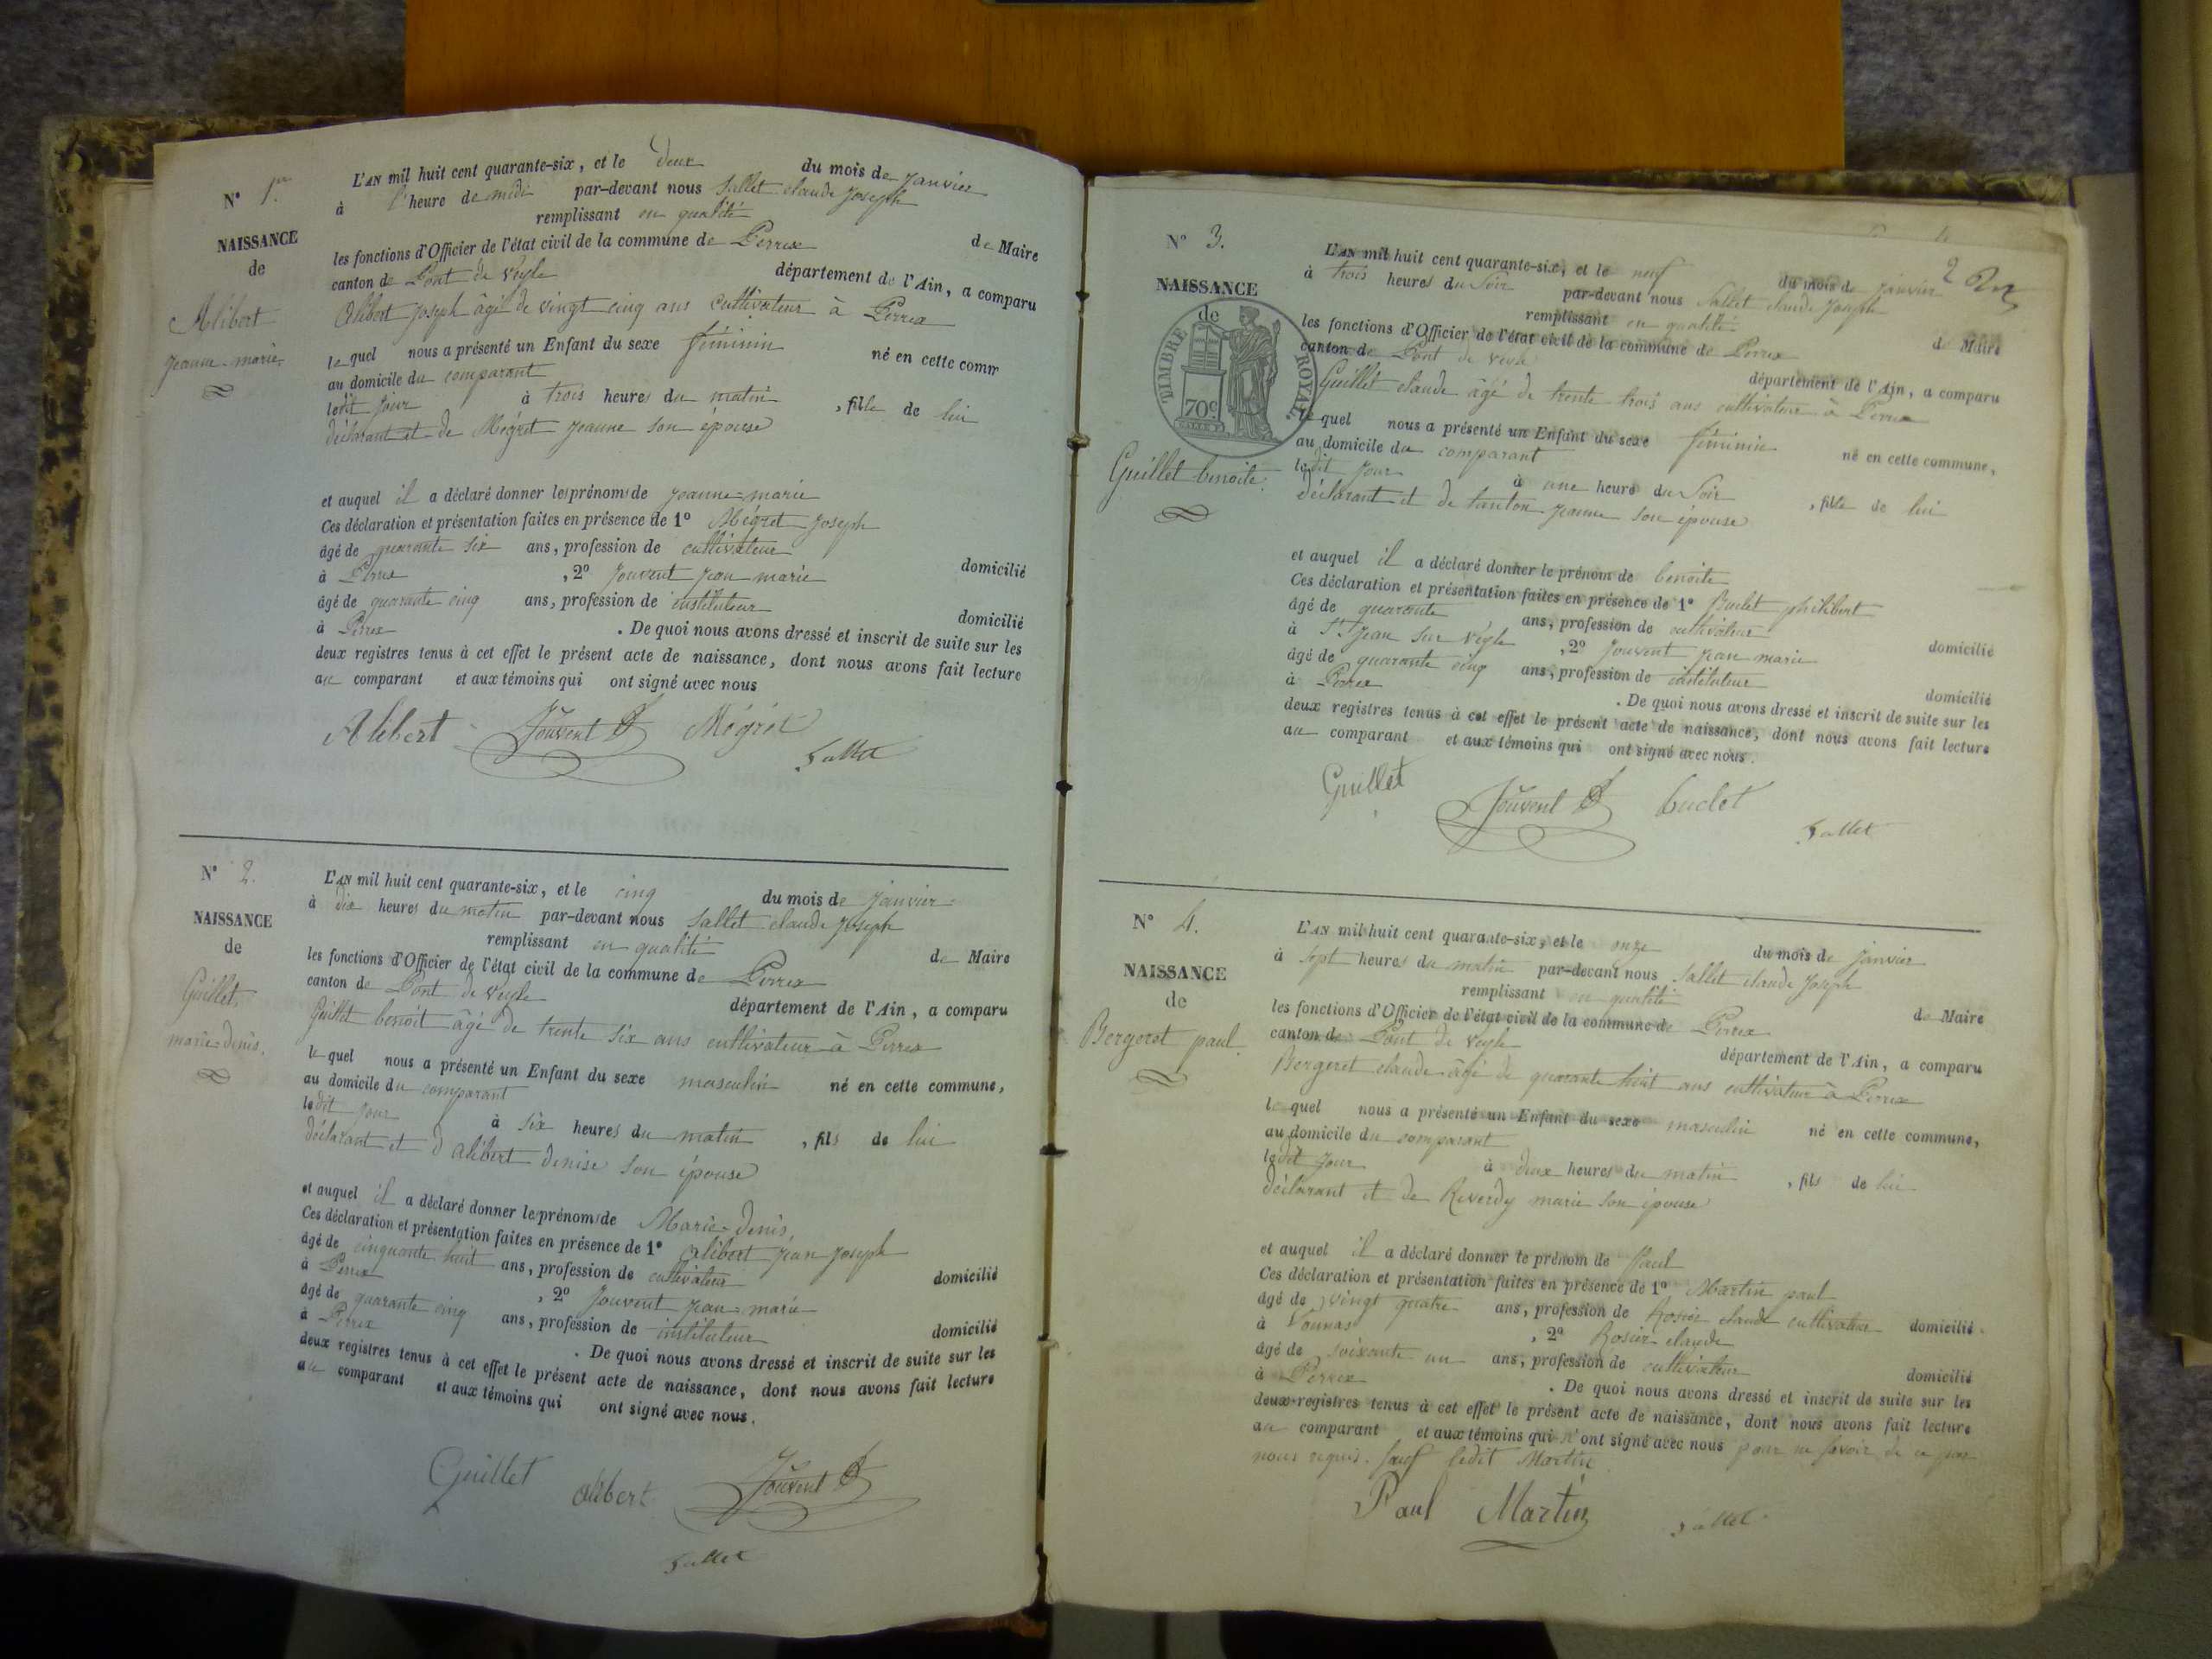 N° 1er
NAISSANCE
de
Alibert
jeanne-marie
L'AN mil huit cent quarante-six, et le deux du mois de janvier
à l'heure de midi par-devant nous Sallet claude joseph
remplissant en qualité de Maire
les fonctions d'Officier de l'état civil de la commune de Perrex
canton de Pont de Veyle département de l'Ain, a comparu
Alibert joseph âgé de vingt cinq ans cultivateur à Perrex
lequel nous a présenté un Enfant du sexe féminin né en cette comm
au domicile du comparant
ledit jour à trois heures du matin, fille de lui
déclarant et de Mégret jeanne son épouse
et auquel il a déclaré donner les prénoms de jeanne-marie
Ces déclaration et présentation faites en présence de 1° Mégret joseph
âgé de quarante six ans, profession de cultivateur domicilié
à Perrex, 2° jouvent jean marie
âgé de quarante cinq ans, profession de instituteur domicilié
à Perrex. De quoi nous avons dressé et inscrit de suite sur les
deux registres tenus à cet effet le présent acte de naissance, dont nous avons fait lecture
au comparant et aux témoins qui ont signé avec nous
Alibert Jouvent Mégret
Sallet
N° 2.
NAISSANCE
de
Guillet,
marie-denis.
L'AN mil huit cent quarante-six, et le cinq du mois de janvier
à dix heures du matin par-devant nous Sallet claude joseph
remplissant en qualité de Maire
les fonctions d'Officier de l'état civil de la commune de Perrex
canton de Pont de Veyle département de l'Ain, a comparu
Guillet benoit âgé de trente six ans cultivateur à Perrex
lequel nous a présenté un Enfant du sexe masculin né en cette commune,
au domicile du comparant
ledit jour à six heures du matin, fils de lui
déclarant et d'alibert denise son épouse
et auquel il a déclaré donner les prénoms de Marie-denis,
Ces déclaration et présentation faites en présence de 1° alibert jean joseph
âgé de cinquante huit ans, profession de cultivateur domicilié
à Perrex, 2° jouvent jean-marie
âgé de quarante cinq ans, profession de instituteur domicilié
à Perrex. De quoi nous avons dressé et inscrit de suite sur les
deux registres tenus à cet effet le présent acte de naissance, dont nous avons fait lecture
au comparant et aux témoins qui ont signé avec nous.
Guillet alibert Jouvent
Sallet
2
N° 3.
NAISSANCE
de
TIMBRE ROYAL
70c.
Guillet benoite.
L'AN mil huit cent quarante-six, et le neuf du mois de janvier
à trois heures du soir par-devant nous Sallet claude joseph
remplissant en qualité de Maire
les fonctions d'Officier de l'état civil de la commune de Perrex
canton de Pont de Veyle département de l'Ain, a comparu
Guillet claude âgé de trente trois ans cultivateur à Perrex
lequel nous a présenté un Enfant du sexe féminin né en cette commune,
au domicile du comparant
ledit jour à une heure du soir, fille de lui
déclarant et de tanton jeanne son épouse
et auquel il a déclaré donner le prénom de benoite
Ces déclaration et présentation faites en présence de 1° Buclet philibert
âgé de quarante ans, profession de cultivateur domicilié
à St jean sur veyle, 2° jouvent jean marie
âgé de quarante cinq ans, profession de instituteur domicilié
à Perrex. De quoi nous avons dressé et inscrit de suite sur les
deux registres tenus à cet effet le présent acte de naissance, dont nous avons fait lecture
au comparant et aux témoins qui ont signé avec nous.
Guillet Jouvent buclet
Sallet
N° 4.
NAISSANCE
de
Bergeret paul.
L'AN mil huit cent quarante-six, et le onze du mois de janvier
à sept heures du matin par-devant nous Sallet claude joseph
remplissant en qualité de Maire
les fonctions d'Officier de l'état civil de la commune de Perrex
canton de Pont de Veyle département de l'Ain, a comparu
Bergeret claude âgé de quarante huit ans cultivateur à Perrex
lequel nous a présenté un Enfant du sexe masculin né en cette commune,
au domicile du comparant
ledit jour à deux heures du matin, fils de lui
déclarant et de Reverdy marie son épouse
et auquel il a déclaré donner le prénom de Paul
Ces déclaration et présentation faites en présence de 1° Martin paul
âgé de vingt quatre ans, profession de Rosier claude cultivateur domicilié
à Vonnas, 2° Rosier claude
âgé de soixante un ans, profession de cultivateur domicilié
à Perrex. De quoi nous avons dressé et inscrit de suite sur les
deux registres tenus à cet effet le présent acte de naissance, dont nous avons fait lecture
au comparant et aux témoins qui n'ont signé avec nous pour ne savoir de ce par
nous requis. sauf ledit Martin
Paul Martin Sallet